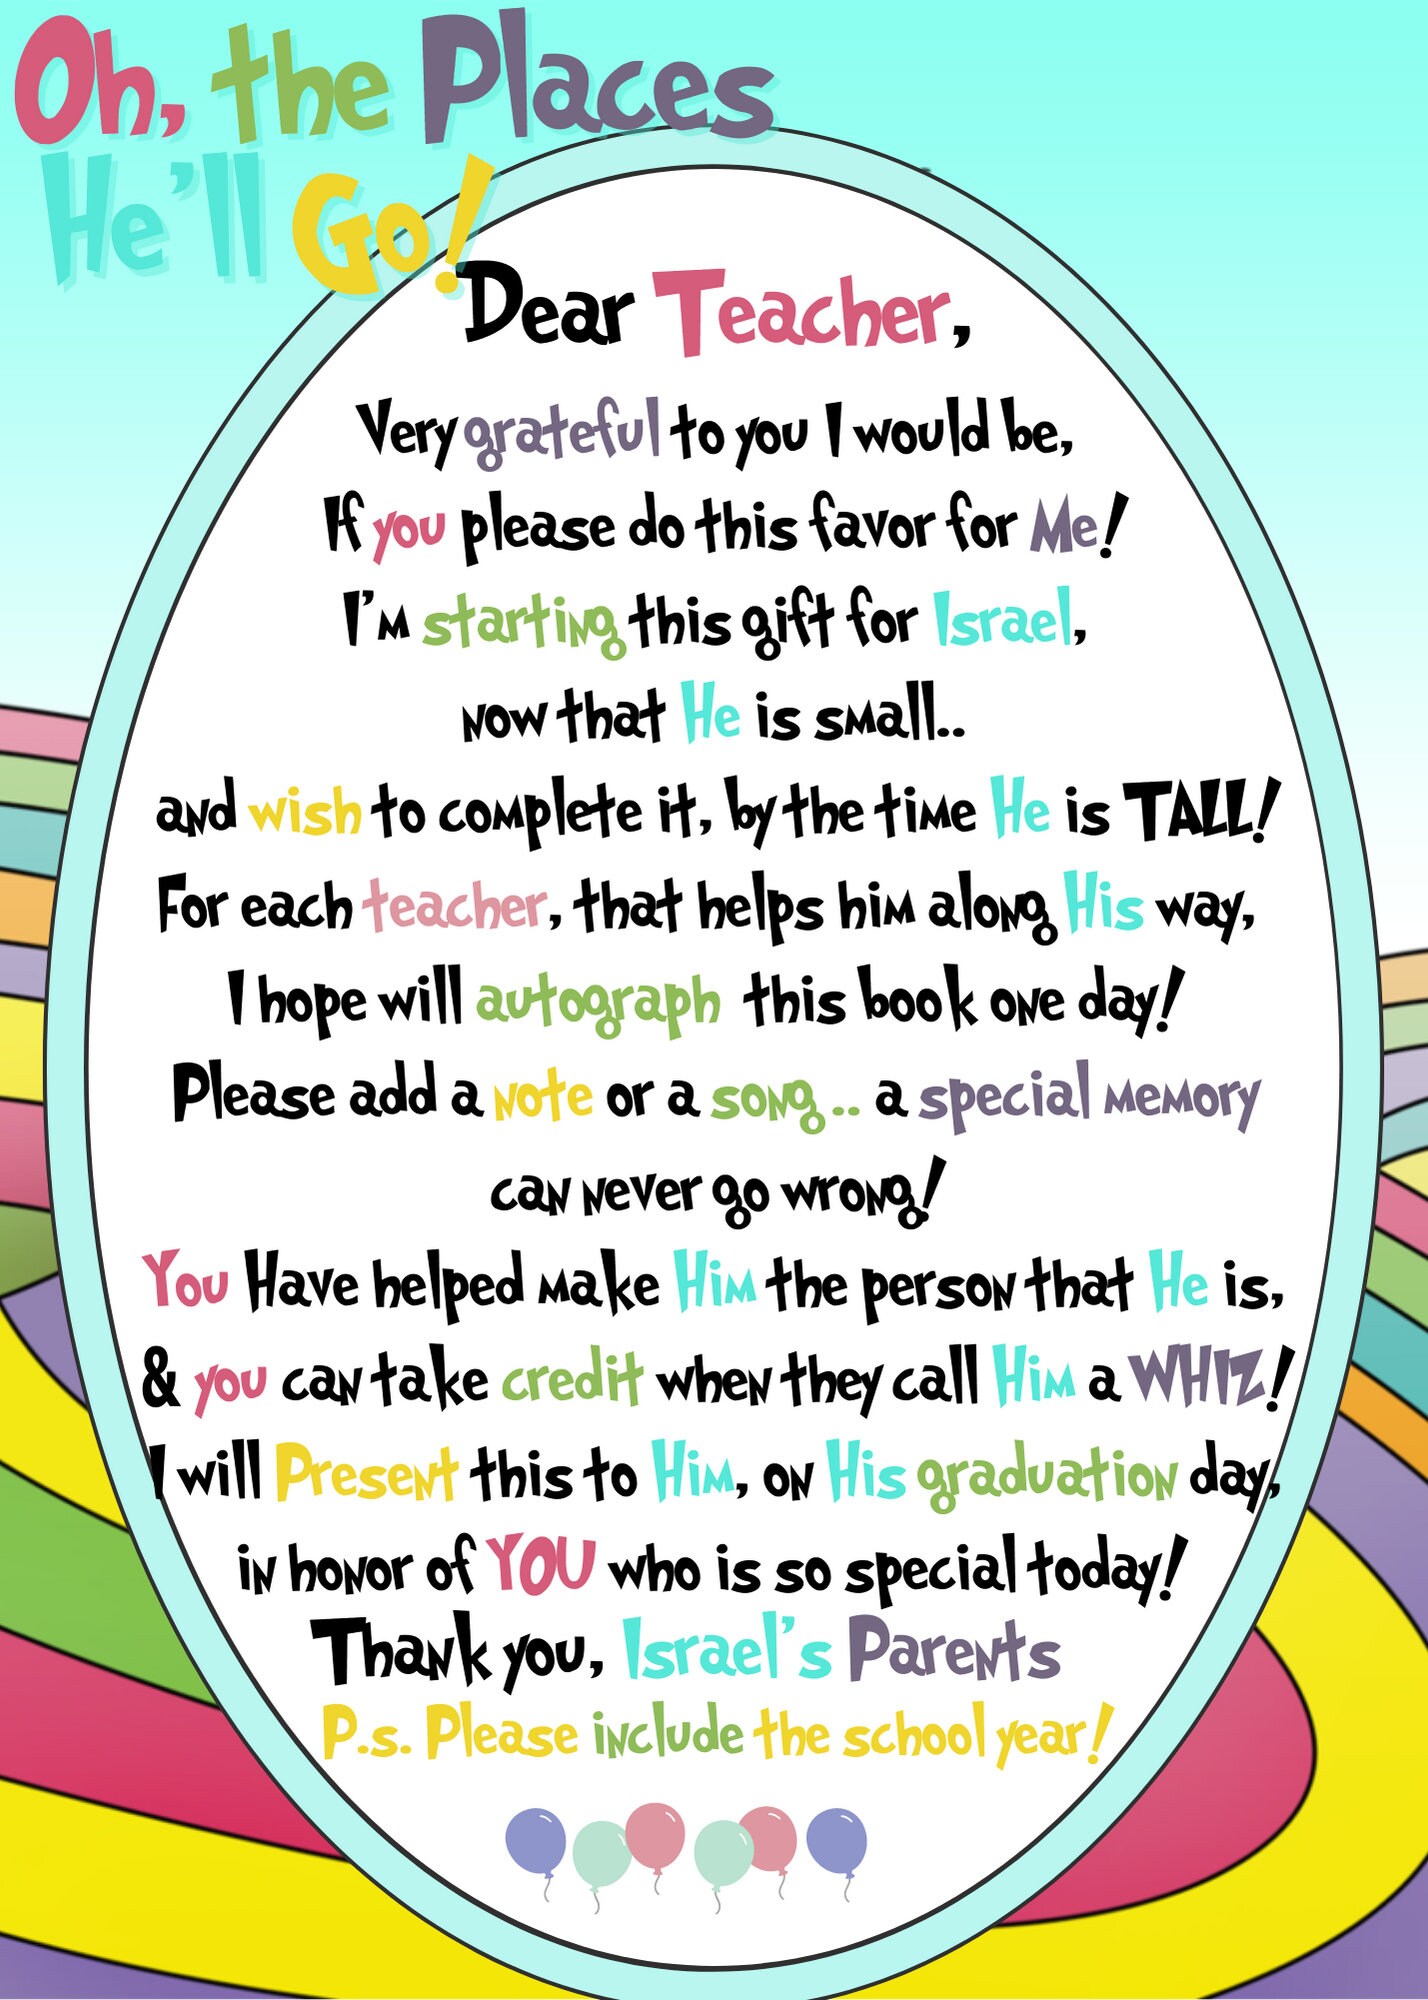 Oh, the Places
He'll Go!
Dear Teacher,
Very grateful to you I would be,
If you please do this favor for Me!
I'm starting this gift for Israel,
now that He is small..
and wish to complete it, by the time He is TALL!
For each teacher, that helps him along His way,
I hope will autograph this book one day!
Please add a note or a song.. a special memory
can never go wrong!
You Have helped make Him the person that He is,
& you can take credit when they call Him a WHIZ!
I will Present this to Him, on His graduation day,
in honor of YOU who is so special today!
Thank you, Israel's Parents
P.s. Please include the school year!